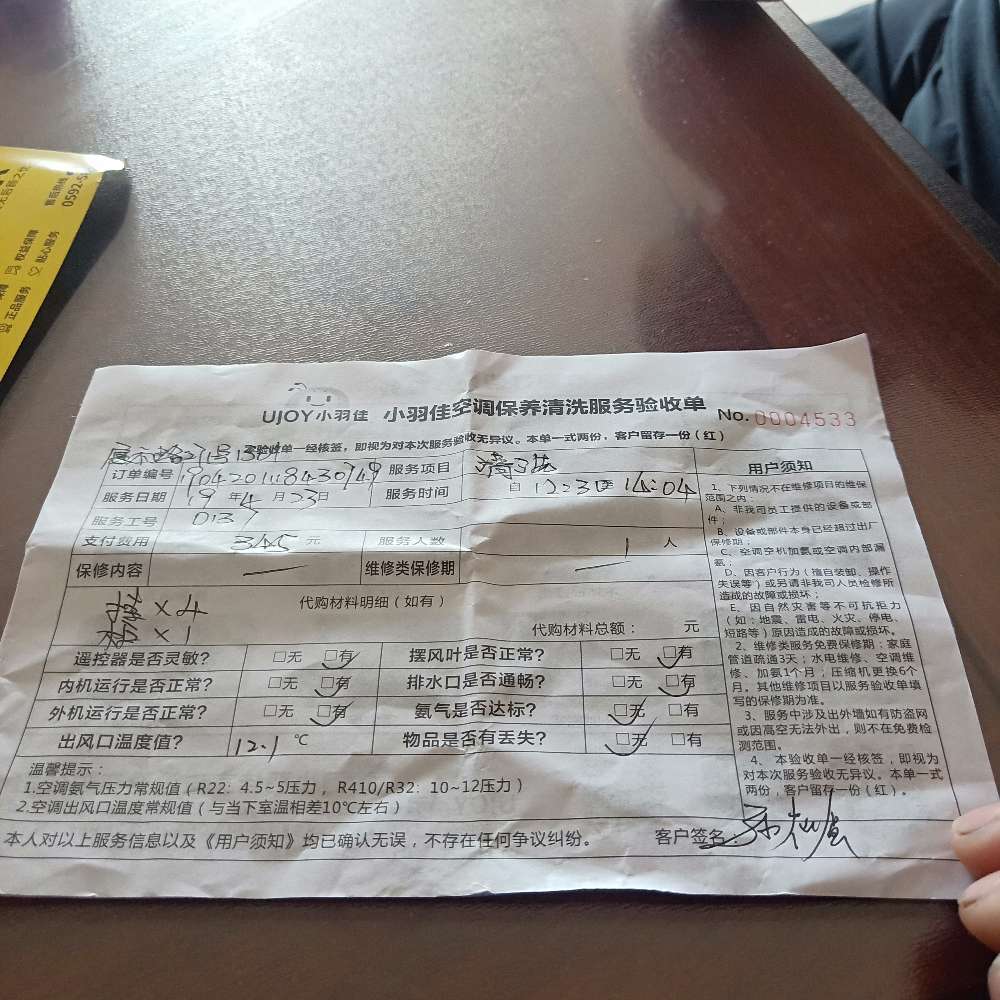 售后热线
0592-5
权益保障
贴心服务
正品服务
UJOY小羽佳 小羽佳空调保养清洗服务验收单 No.0004533
本验收单一经核签,即视为对本次服务验收无异议。本单一式两份,客户留存一份(红)
订单编号 服务项目
服务日期 19 年 4 月 23 日 服务时间 自 12:30 至 14:04
服务工号 0137
支付费用 345 元 服务人数 1 人
保修内容 — 维修类保修期 —
代购材料明细(如有)
×4
×1
代购材料总额: 元
遥控器是否灵敏? □无 □有 ✓ 摆风叶是否正常? □无 □有 ✓
内机运行是否正常? □无 □有 ✓ 排水口是否通畅? □无 □有 ✓
外机运行是否正常? □无 □有 ✓ 氨气是否达标? □无 ✓ □有
出风口温度值? 12.1 ℃ 物品是否有丢失? □无 ✓ □有
温馨提示:
1.空调氨气压力常规值(R22: 4.5~5压力, R410/R32: 10~12压力)
2.空调出风口温度常规值(与当下室温相差10℃左右)
本人对以上服务信息以及《用户须知》均已确认无误,不存在任何争议纠纷。 客户签名:
用户须知
1、下列情况不在维修项目的维保
范围之内:
A、非我司员工提供的设备或部
件;
B、设备或部件本身已经超过出厂
保修期;
C、空调空机加氨或空调内部漏
氨;
D、因客户行为(擅自装卸、操作
失误等)或另请非我司人员检修所
造成的故障或损坏;
E、因自然灾害等不可抗拒力
(如:地震、雷电、火灾、停电、
短路等)原因造成的故障或损坏。
2、维修类服务免费保修期:家庭
管道疏通3天;水电维修、空调维
修、加氨1个月;压缩机更换6个
月。其他维修项目以服务验收单填
写的保修期为准。
3、服务中涉及出外墙如有防盗网
或因高空无法外出,则不在免费检
测范围。
4、本验收单一经核签,即视为
对本次服务验收无异议。本单一式
两份,客户留存一份(红)。